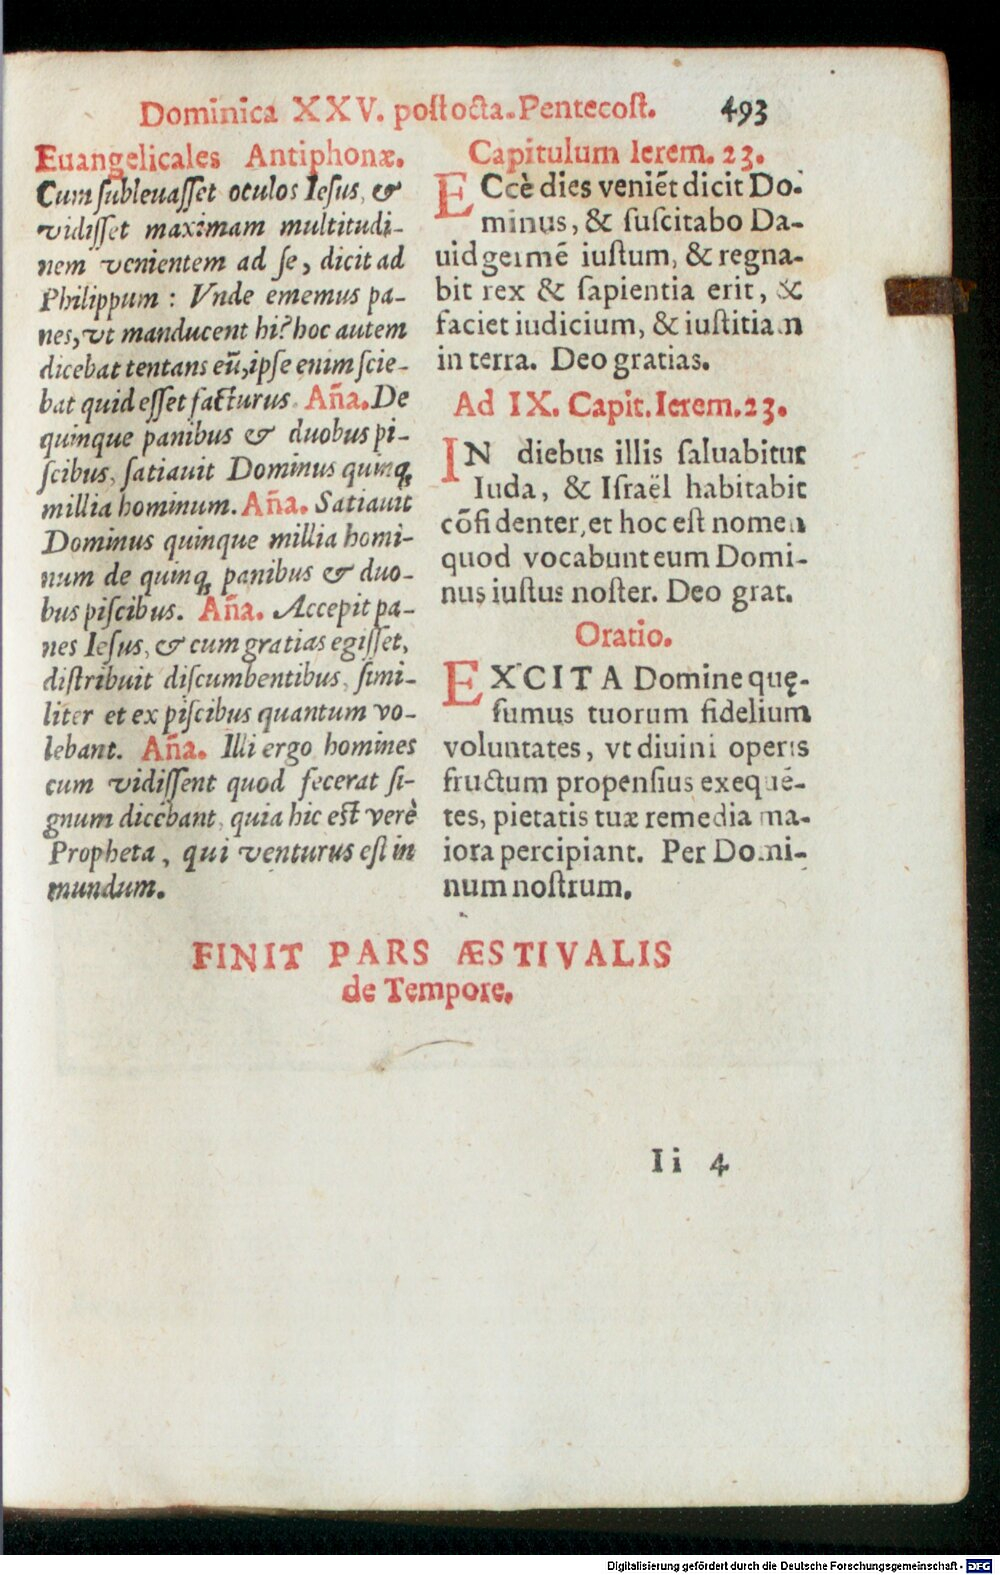 Dominica XXV. post octa. Pentecost. 493
Euangelicales Antiphonæ.
Cum subleuasset oculos Iesus, &
vidisset maximam multitudi-
nem venientem ad se, dicit ad
Philippum : Vnde ememus pa-
nes, vt manducent hi? hoc autem
dicebat tentans eũ, ipse enim scie-
bat quid esset facturus. Aña. De
quinque panibus & duobus pi-
scibus, satiauit Dominus quinq;
millia hominum. Aña. Satiauit
Dominus quinque millia homi-
num de quinq; panibus & duo-
bus piscibus. Aña. Accepit pa-
nes Iesus, & cum gratias egisset,
distribuit discumbentibus, simi-
liter et ex piscibus quantum vo-
lebant. Aña. Illi ergo homines
cum vidissent quod fecerat si-
gnum dicebant, quia hic est verè
Propheta, qui venturus est in
mundum.
Capitulum Ierem. 23.
ECcè dies veniẽt dicit Do-
minus, & suscitabo Da-
uid germẽ iustum, & regna-
bit rex & sapientia erit, &
faciet iudicium, & iustitiam
in terra. Deo gratias.
Ad IX. Capit. Ierem. 23.
IN diebus illis saluabitur
Iuda, & Israël habitabit
cõfidenter, et hoc est nomen
quod vocabunt eum Domi-
nus iustus noster. Deo grat.
Oratio.
EXCITA Domine quę-
sumus tuorum fidelium
voluntates, vt diuini operis
fructum propensius exequẽ-
tes, pietatis tuæ remedia ma-
iora percipiant. Per Domi-
num nostrum.
FINIT PARS ÆSTIVALIS
de Tempore.
Ii 4
Digitalisierung gefördert durch die Deutsche Forschungsgemeinschaft - DFG